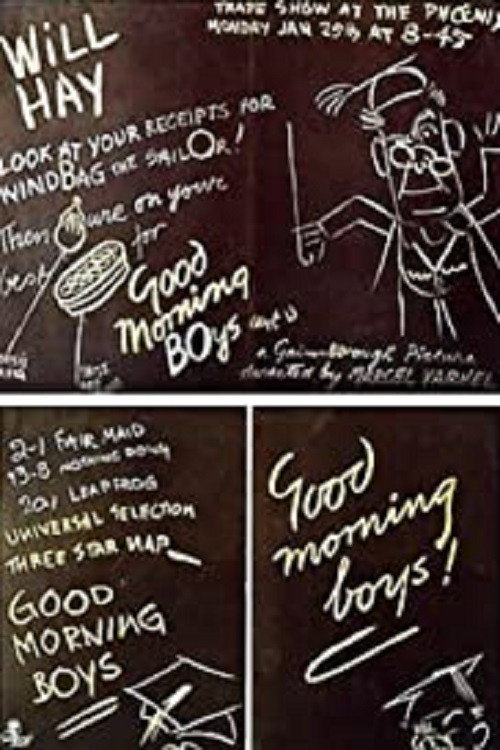 TRADE SHOW AT THE PHOENIX
MONDAY JAN 25th AT 8-45
WILL
HAY
LOOK AT YOUR RECEIPTS FOR
WINDBAG THE SAILOR!
Then on your
best for
Good
Morning
BOYS
a Gainsborough Picture
directed by MARCEL VARNEL
2-1 FAIR MAID
13-8
201 LEAPFROG
UNIVERSAL SELECTION
THREE STAR NAP
GOOD
MORNING
BOYS
Good
morning
boys!